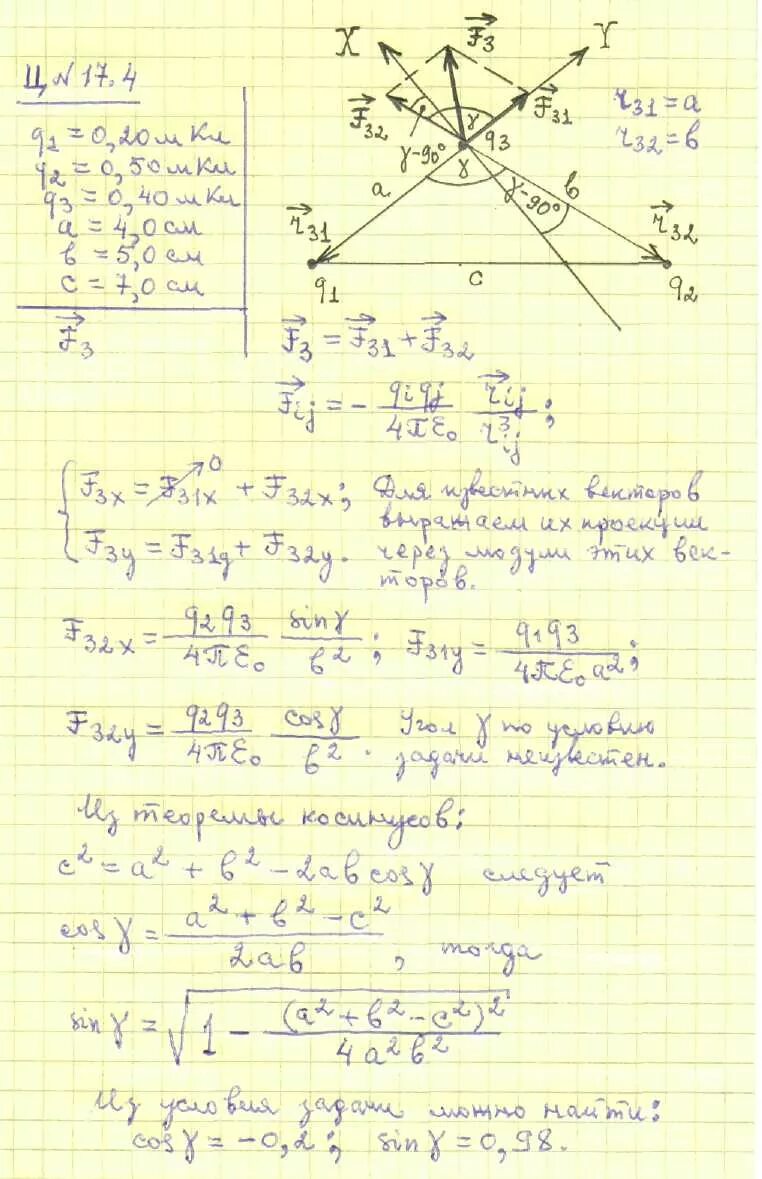 Ц № 17.4
q₁ = 0,20 мКл
q₂ = 0,50 мКл
q₃ = 0,40 мКл
a = 4,0 см
b = 5,0 см
c = 7,0 см
F⃗₃
X
F⃗₃
Y
F⃗₃₂
γ
F⃗₃₁
q₃
γ-90°
γ
a
γ-90°
b
r⃗₃₁
r⃗₃₂
q₁
c
q₂
r₃₁ = a
r₃₂ = b
F⃗₃ = F⃗₃₁ + F⃗₃₂
F⃗ij = - qiqj/4πε₀ r⃗ij/r³ij ;
{ F₃ₓ = F₃₁ₓ→0 + F₃₂ₓ; Для известных векторов
выражаем их проекции
F₃y = F₃₁y + F₃₂y. через модули этих век-
торов.
F₃₂ₓ = q₂q₃/4πε₀ sinγ/b² ; F₃₁y = q₁q₃/4πε₀a² ;
F₃₂y = q₂q₃/4πε₀ cosγ/b² . Угол γ по условию
задачи неизвестен.
Из теоремы косинусов:
c² = a² + b² - 2ab cosγ следует
cosγ = a² + b² - c²/2ab , тогда
sinγ = √1 - (a² + b² - c²)²/4a²b²
Из условия задачи можно найти:
cosγ = -0,2 ; sinγ = 0,98.